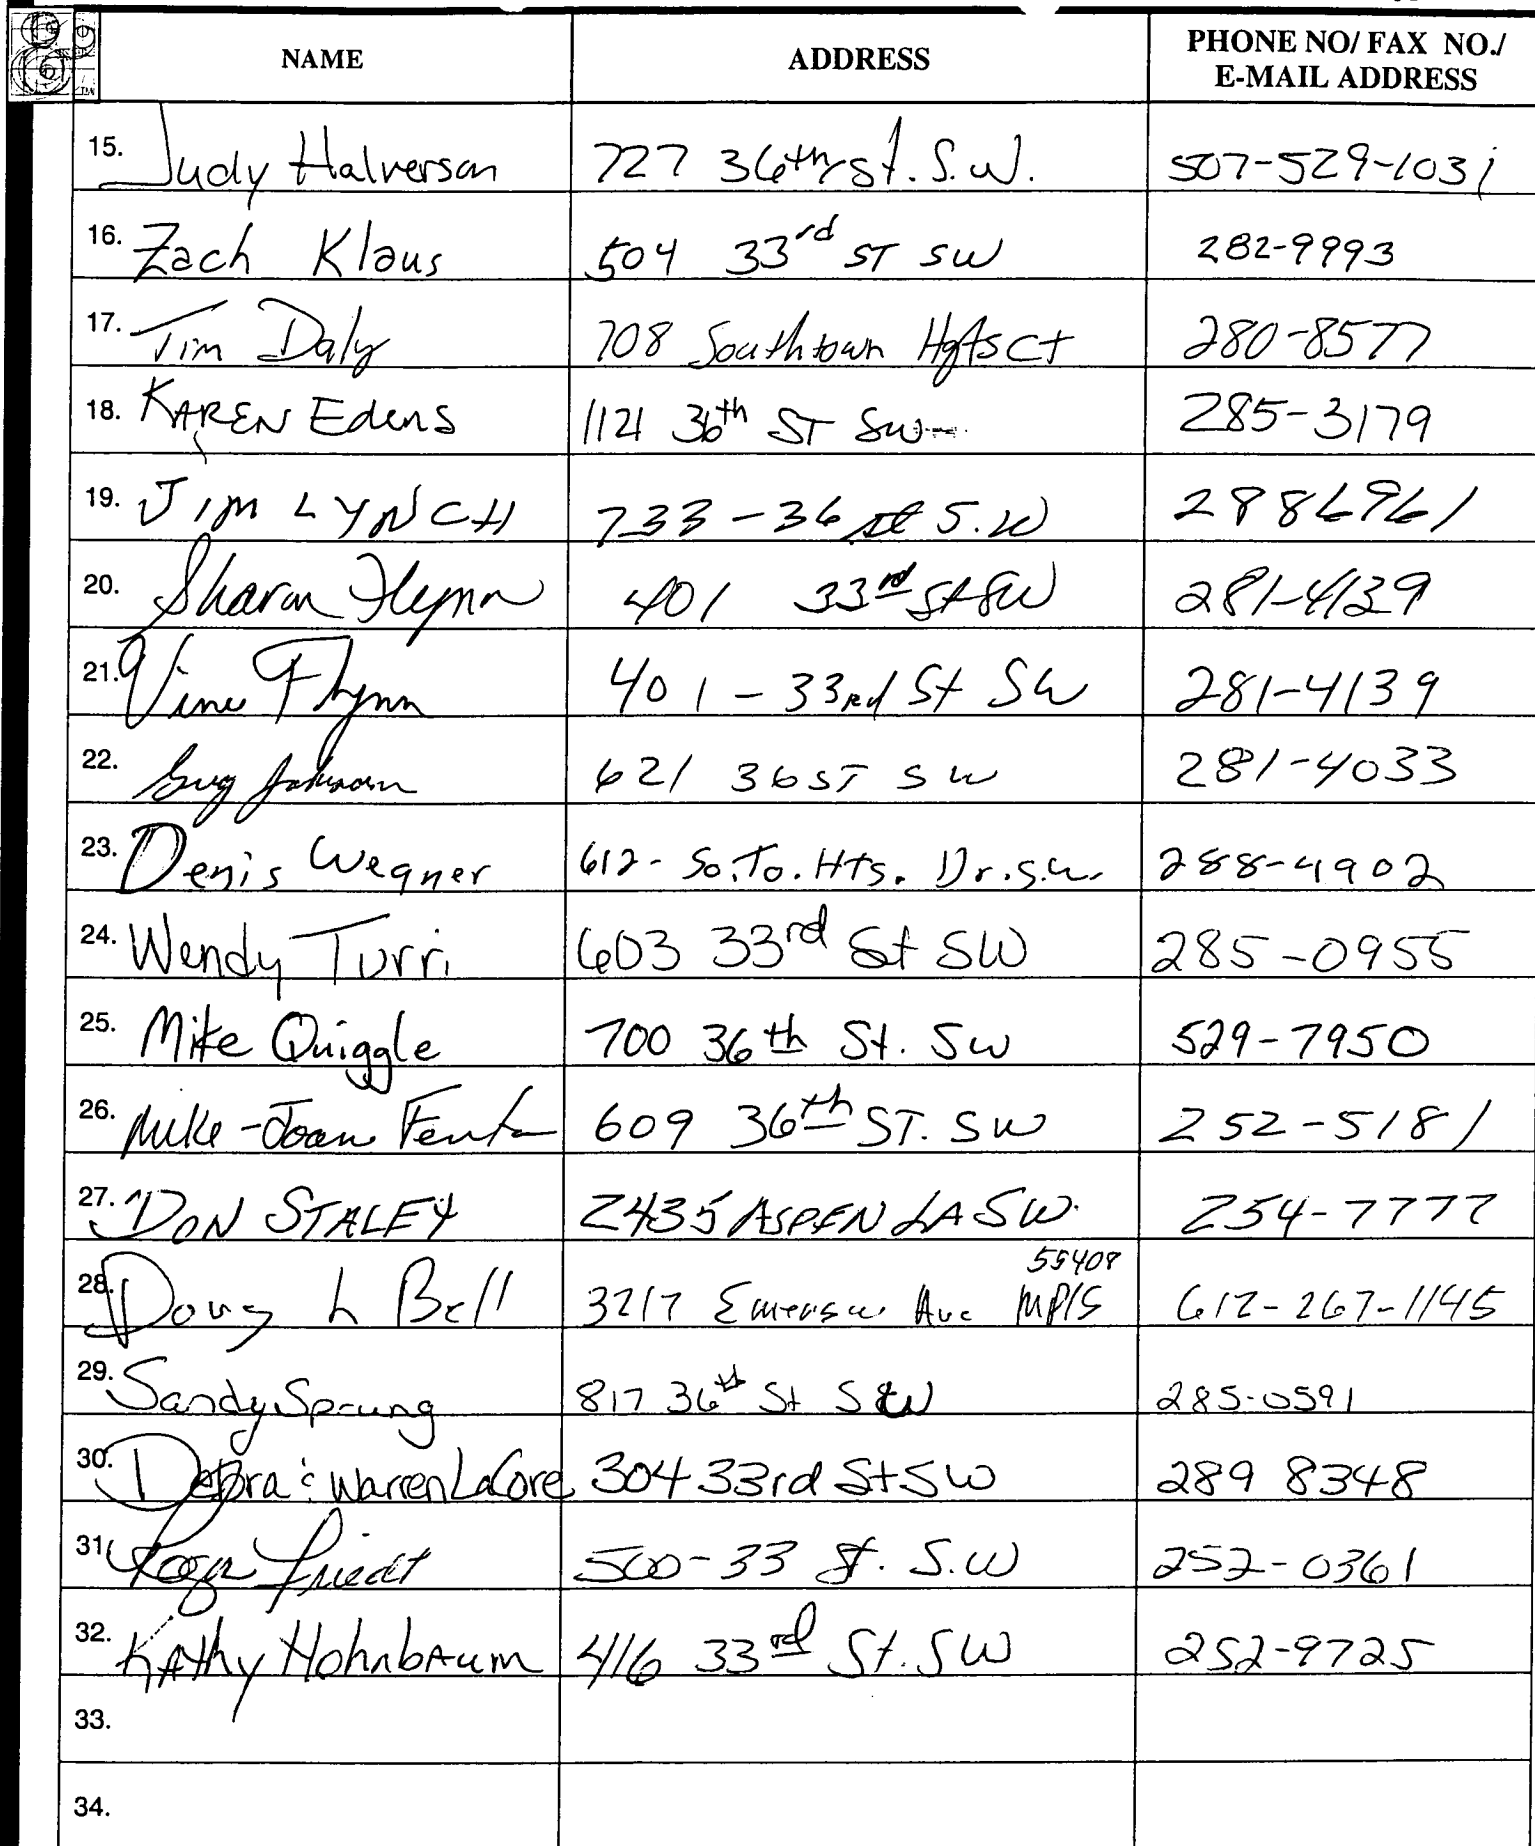 NAME ADDRESS PHONE NO/ FAX NO./
E-MAIL ADDRESS
15. Judy Halverson 727 36th St. S.W. 507-529-1031
16. Zach Klaus 504 33rd ST SW 282-9993
17. Tim Daly 708 Southtown Hgts Ct 280-8577
18. KAREN Edens 1121 36th ST SW 285-3179
19. JIM LYNCH 733-36 St S.W 2886961
20. Sharon Flynn 401 33rd St SW 281-4139
21. Vince Flynn 401-33rd St SW 281-4139
22. Johnson 621 36 ST SW 281-4033
23. Denis Wegner 612- So. To. Hts. Dr. S.W. 288-4902
24. Wendy Turri 603 33rd St SW 285-0955
25. Mike Quiggle 700 36th St. SW 529-7950
26. Mike-Joan 609 36th ST. SW 252-5181
27. DON STALEY 2435 ASPEN LA SW. 254-7777
55408
28. Doug L Bell 3217 Emerson Ave Mpls 612-267-1145
29. Sandy Sprung 817 36th St SW 285-0591
30. Debra & Warren LaCore 304 33rd St SW 289 8348
31. Roger Friedt 500-33 St. S.W 252-0361
32. KAthy HohnbAum 416 33rd St. SW 252-9725
33.
34.